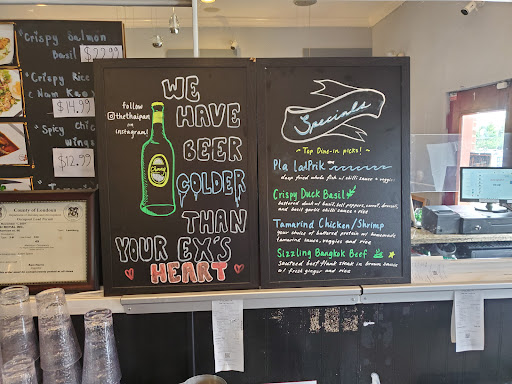 Crispy Salmon
Basil
$22.99
Crispy Rice
(Nam Kao)
$14.99
Spicy Chic
wings
$12.99
County of Loudoun
follow
@thethaipan
on
instagram!
Chang
WE
HAVE
BEER
COLDER
THAN
YOUR EX'S
HEART
Specials
~ Top Dine-in picks! ~
Pla ladPrik
deep fried whole fish w/ chilli sauce + veggie
Crispy Duck Basil
battered duck w/ basil, bell peppers, carrot, broccoli,
and basil garlic chilli sauce + rice
Tamarind Chicken/Shrimp
your choice of battered protein w/ homemade
tamarind sauce, veggies and rice
Sizzling Bangkok Beef
sauteed beef flank steak in brown sauce
w/ fresh ginger and rice